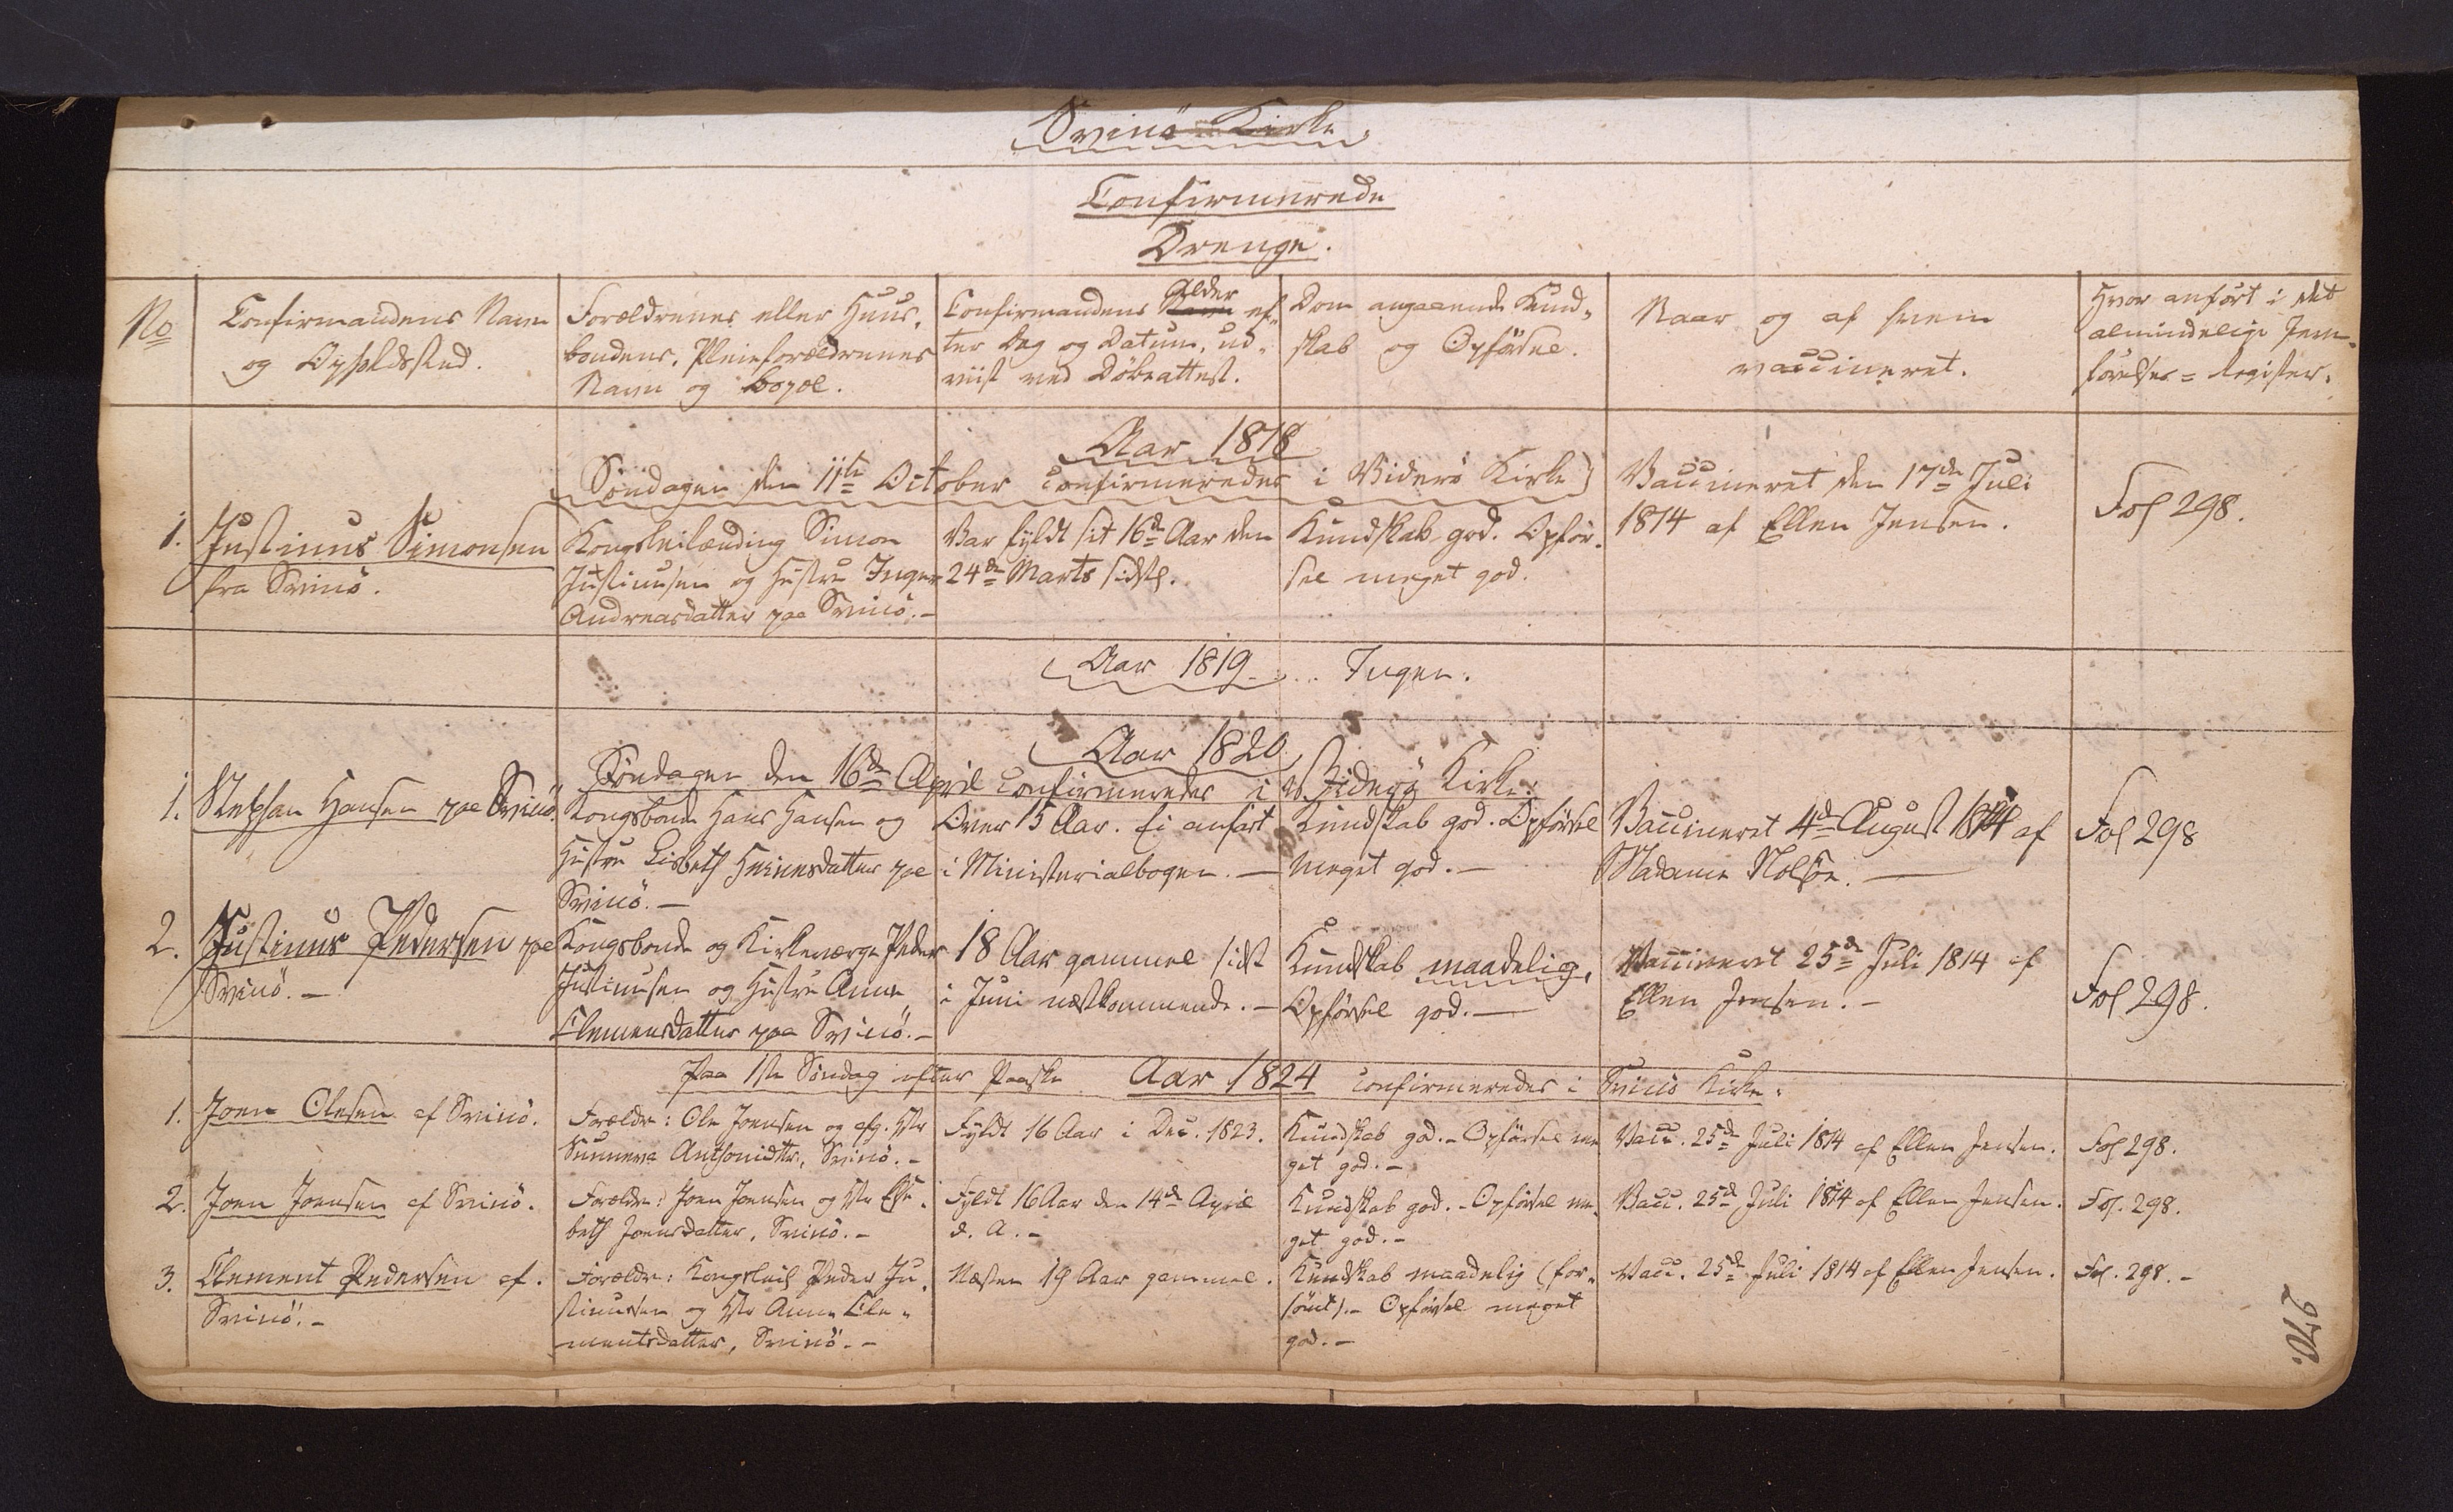 Svinö Kirke.
Confirmerede
Drenge.
No
Confirmandens Navn
og Opholdssted.
Forældrenes eller Huus-
bondens, Pleieforældrenes
Navn og Bopæl.
Confirmandens Alder ef-
ter Dag og Datum, ud-
viist ved Döbeattest.
Dom angaaende Kund-
skab og Opförsel.
Naar og af hvem
vaccineret.
Hvor anfört i det
almindelige Jevn-
förelses-Register.
Aar 1818
Söndagen den 11te October confirmeredes i Viderö Kirke)
1. Justinus Simonsen
fra Svinö.
Kongsleilænding Simon
Justinusen og Hustru Inger
Andreasdatter paa Svinö.-
Var fyldt sit 16de Aar den
24de Marts sidstl.
Kundskab god. Opför-
sel meget god.
Vaccineret den 17de Juli
1814 af Ellen Jensen.
Fol 298.
Aar 1819... Ingen.
Aar 1820
Söndagen den 16de April confirmeredes i Viderö Kirke:
1. Stephan Hansen paa Svinö.
Kongsbonde Hans Hansen og
Hustru Lisbeth Heinesdatter paa
Svinö.-
Over 15 Aar. Ei anfört
i Ministerialbogen.-
Kundskab god. Opförsel
meget god.-
Vaccineret 4de August 1814 af
Madame Nolsöe.
Fol 298
2. Justinus Pedersen paa
Svinö.-
Kongsbonde og Kirkeværge Peder
Justinusen og Hustru Anne
Clemensdatter paa Svinö.-
18 Aar gammel sidst
i Juni næstkommende.-
Kundskab maadelig,
Opförsel god.-
Vaccineret 25de Juli 1814 af
Ellen Jensen.-
Fol 298.
Paa 1ste Söndag efter Paaske Aar 1824 confirmeredes i Svinö Kirke.
1. Joen Olesen af Svinö.
Forældre: Ole Joensen og afg. Hstr
Sunneva Anthonidtr, Svinö.-
Fyldt 16 Aar i Dec. 1823.
Kundskab god.- Opförsel me
get god.-
Vacc. 25de Juli 1814 af Ellen Jensen.
Fol 298.
2. Joen Joensen af Svinö.
Forældre: Joen Joensen og Hstr Else-
beth Joensdatter, Svinö.-
Fyldt 16 Aar den 14de April
d. A.-
Kundskab god.- Opförsel me-
get god.-
Vacc. 25de Juli 1814 af Ellen Jensen.
Fol. 298.
3. Clement Pedersen af
Svinö.-
Forældre: Kongsleil. Peder Ju-
stinussen og Hstr Anne Cle-
mentsdatter, Svinö.-
Næsten 19 Aar gammel.
Kundskab maadelig (for-
sömt).- Opförsel meget
god.-
Vacc. 25de Juli 1814 af Ellen Jensen.
Fol. 298.-
270.